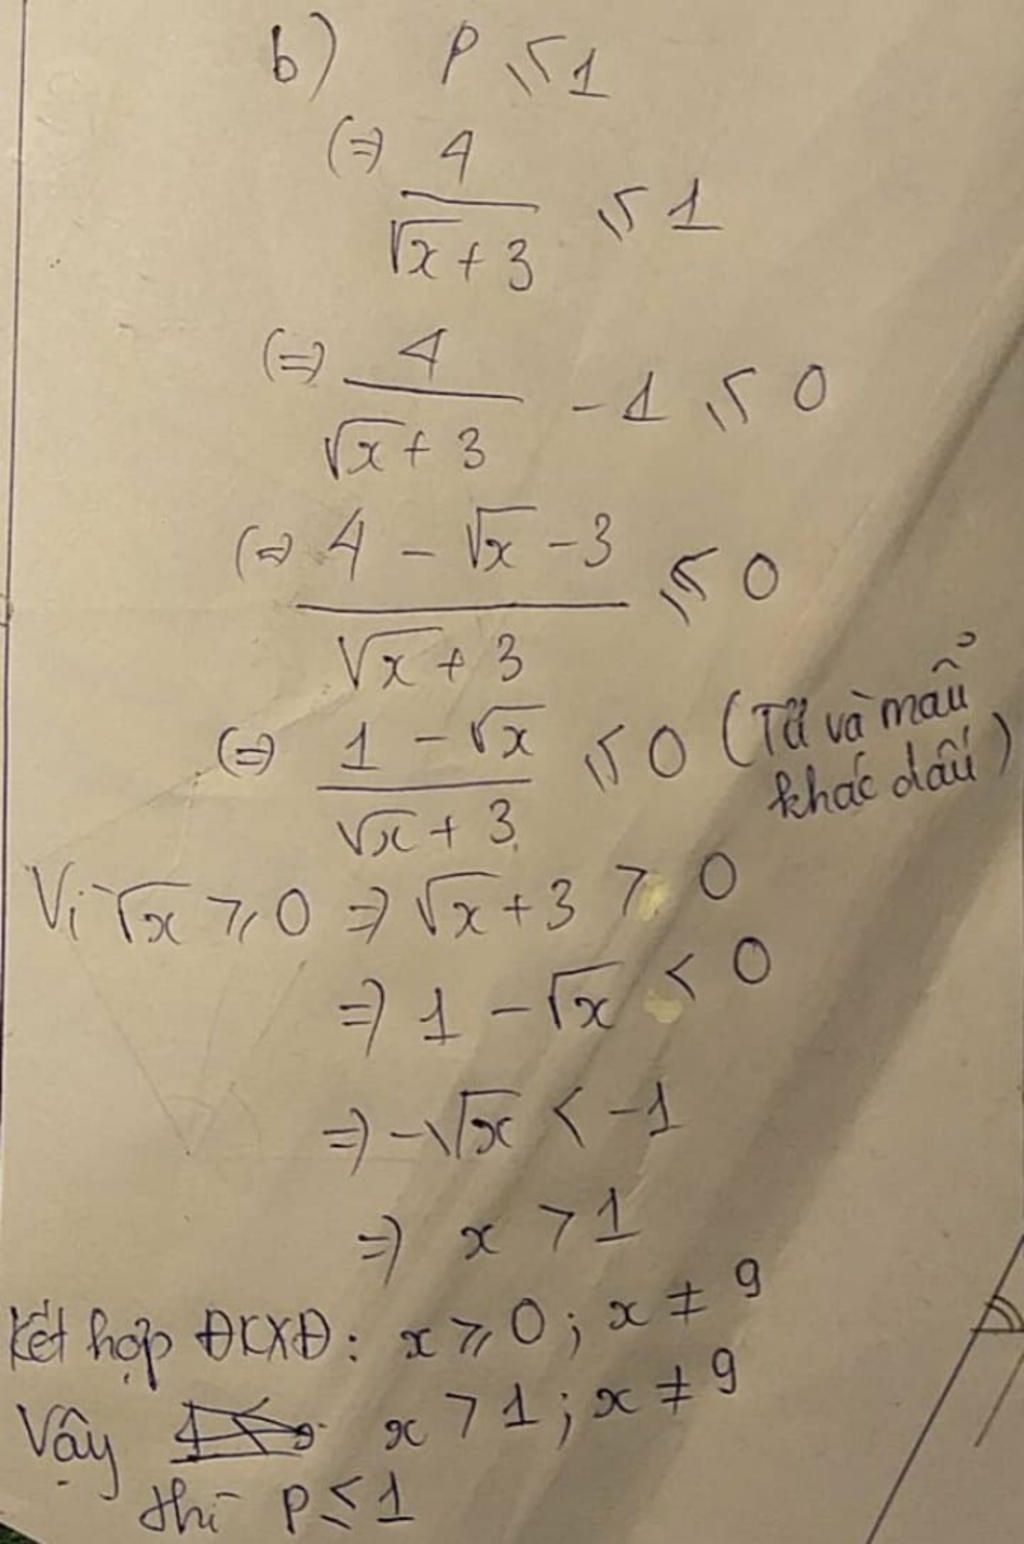 b) P ≤ 1
(=) 4/(√x + 3) ≤ 1
(=) 4/(√x + 3) - 1 ≤ 0
(=) (4 - √x - 3)/(√x + 3) ≤ 0
(=) (1 - √x)/(√x + 3) ≤ 0 (Tử và mẫu
khác dấu)
Vì √x ≥ 0 => √x + 3 > 0
=> 1 - √x < 0
=> -√x < -1
=> x > 1
Kết hợp ĐKXĐ: x ≥ 0; x ≠ 9
Vậy x > 1; x ≠ 9
thì P ≤ 1